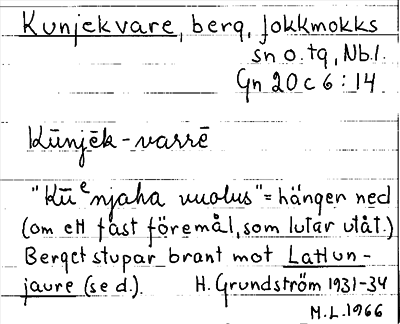 Kunjekvare, berg, Jokkmokks
sn o. tg, Nb.l.
Gn 20 C 6 : 14
Kūnjēk - varrē
"Kūᵉnjaha vuolus" = hänger ned
(om ett fast föremål, som lutar utåt.)
Berget stupar brant mot Lattun-
jaure (se d.). H. Grundström 1931-34
M.L. 1966